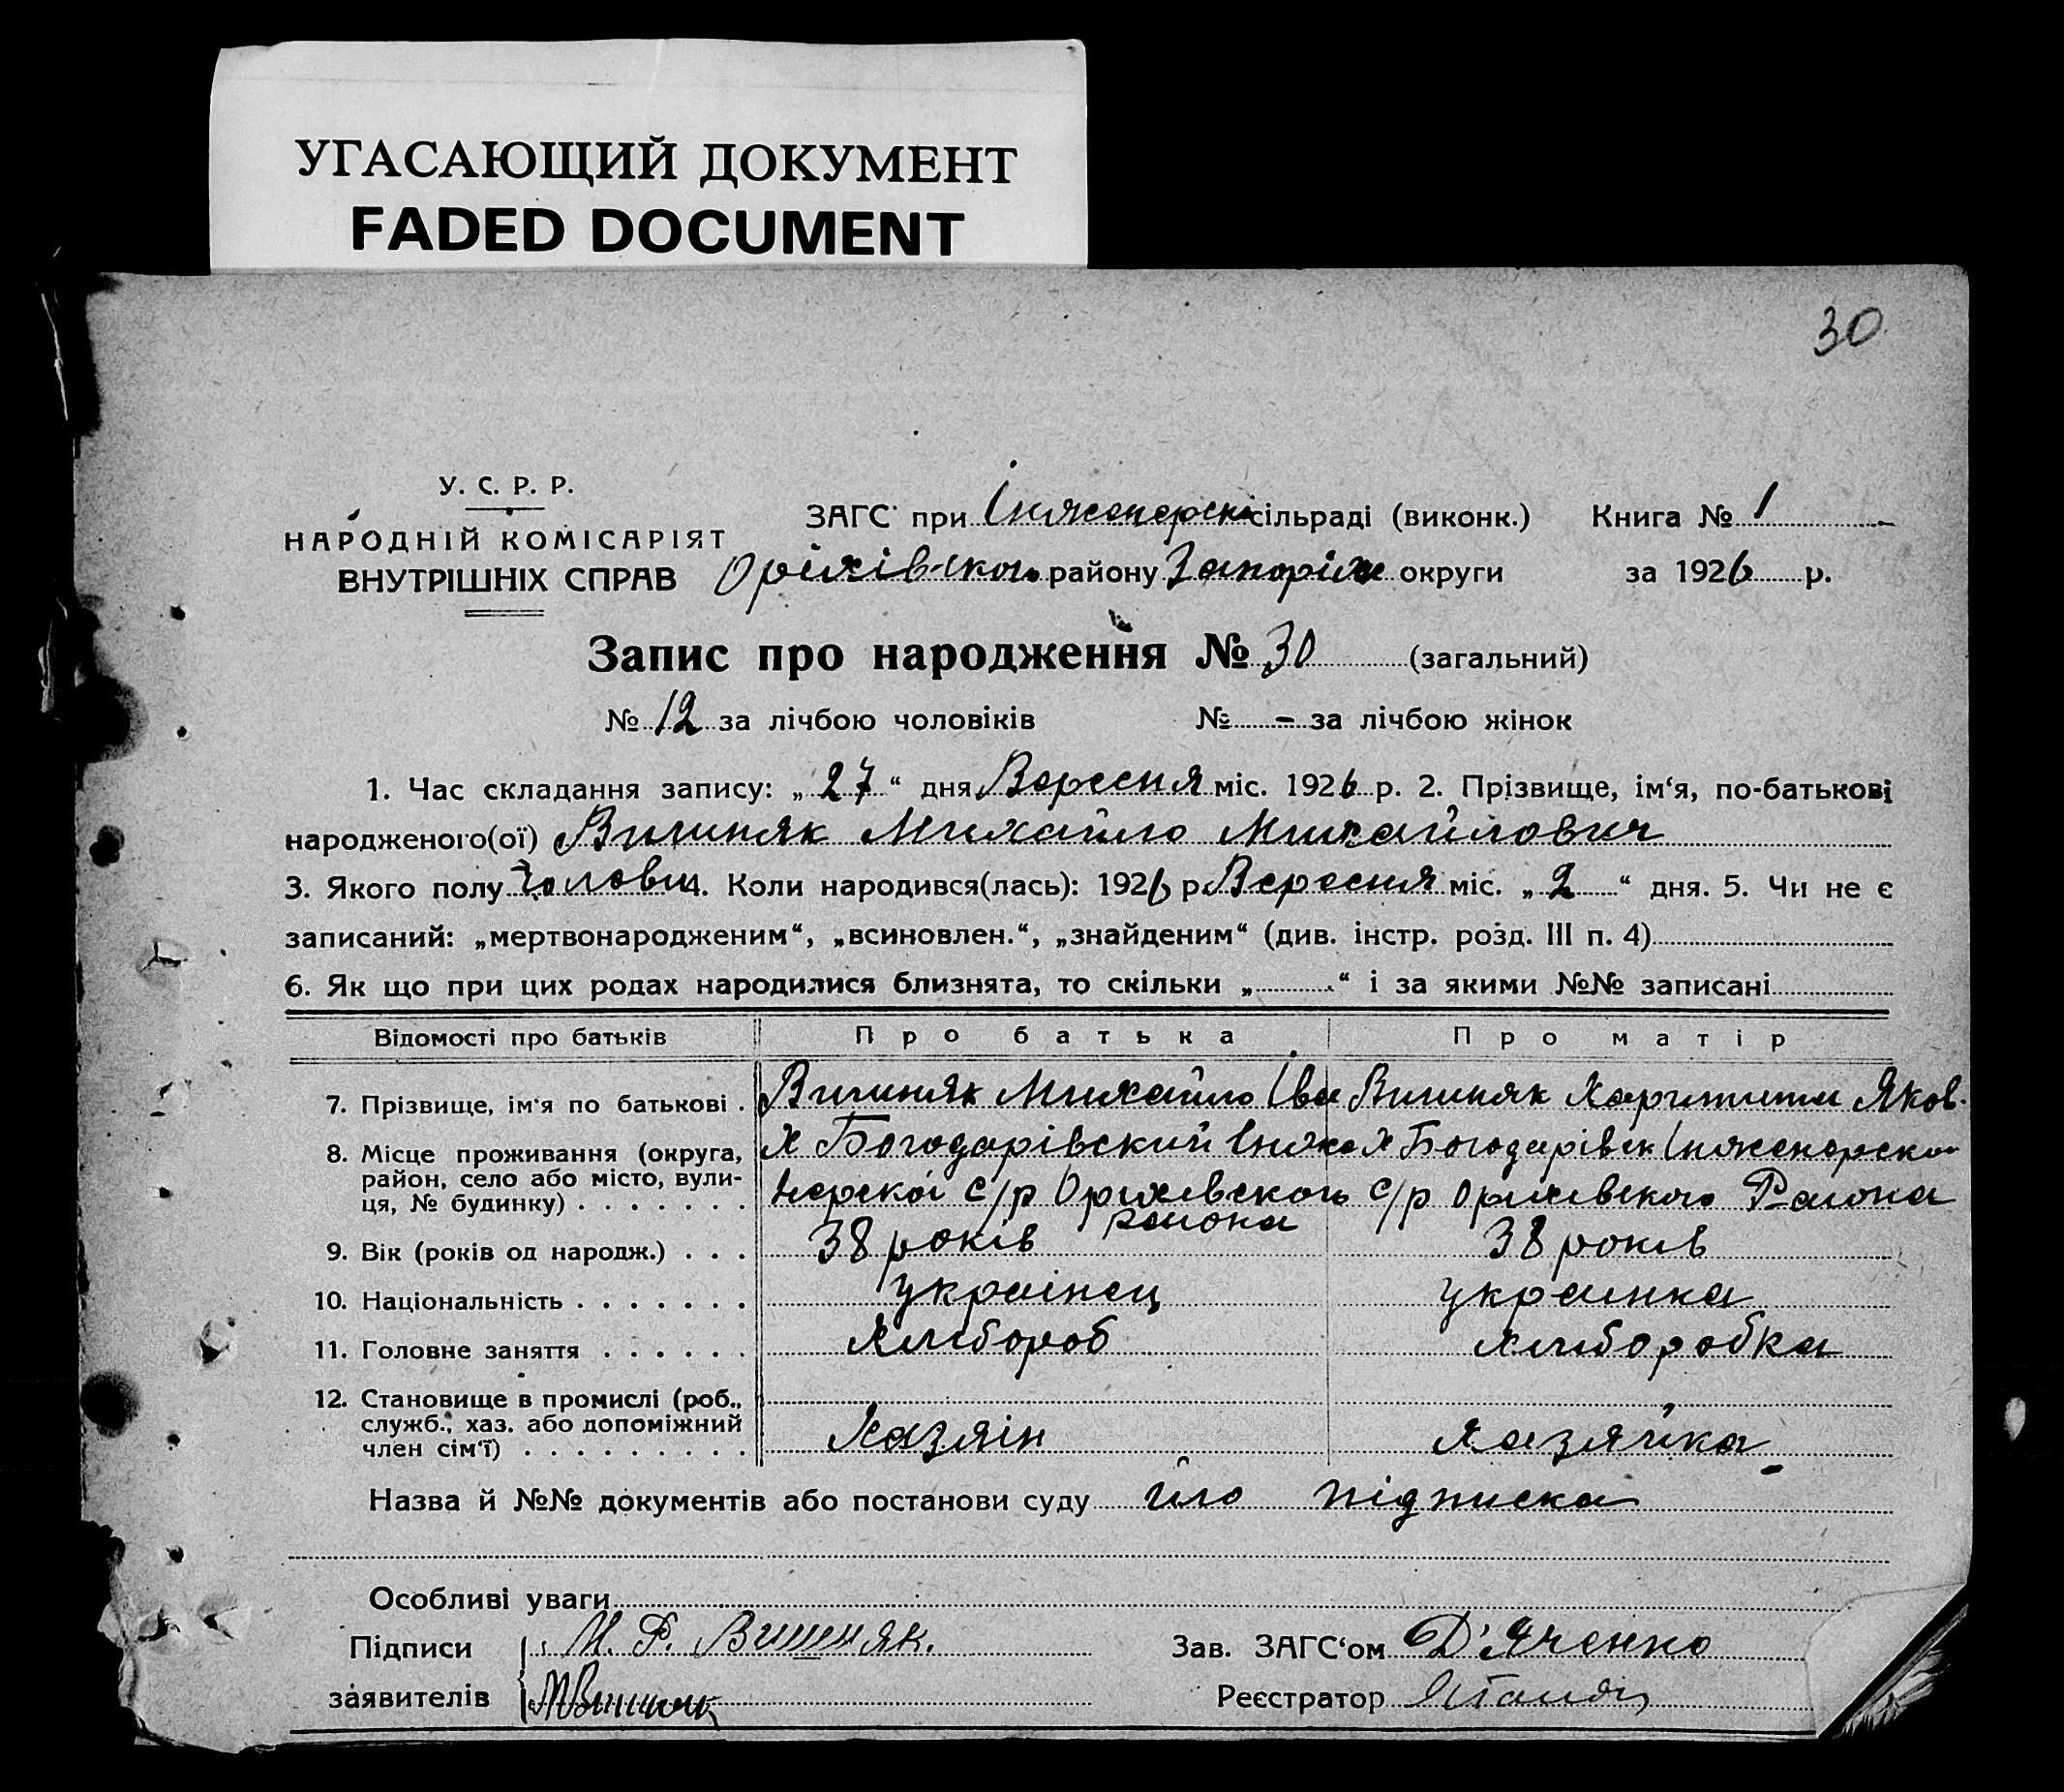 УГАСАЮЩИЙ ДОКУМЕНТ
FADED DOCUMENT
30
У. С. Р. Р.
НАРОДНІЙ КОМІСАРІЯТ
ВНУТРІШНІХ СПРАВ
ЗАГС при Інженерскі сільраді (виконк.) Книга № 1
Оріхівського району Запоріж округи за 1926 р.
Запис про народження № 30 (загальний)
№ 12 за лічбою чоловіків № - за лічбою жінок
1. Час складання запису: „ 27 “ дня Вересня міс. 1926 р. 2. Прізвище, ім‘я, по-батькові
народженого(ої) Вишняк Михайло Михайлович
3. Якого полу чоловіч 4. Коли народився(лась): 1926 р Вересня міс. „ 2 “ дня. 5. Чи не є
записаний: „мертвонародженим“, „всиновлен.“, „знайденим“ (див. інстр. розд. III п. 4)
6. Як що при цих родах народилися близнята, то скільки „ “ і за якими №№ записані
Відомості про батьків Про батька Про матір
7. Прізвище, ім‘я по батькові . Вишняк Михайло Іва Вишняк Харитина Яков.
8. Місце проживання (округа, Х Богодарівский Інже Х Богодарівск Інженерскои
район, село або місто, вули-
ця, № будинку) . . . . . . . нерскоі с/р Оріхівского с/р Оріхівского Района
района
9. Вік (років од народж.) . . . 38 років 38 років
10. Національність . . . . . . . українец украинка
11. Головне заняття . . . . . . Хлибороб хлиборобка
12. Становище в промислі (роб.,
служб., хаз. або допоміжний
член сім‘ї) . . . . . . . . . Хазяін хазяйка
Назва й №№ документів або постанови суду підписка
Особливі уваги
Підписи М. Вишняк. Зав. ЗАГС‘ом Д'Яченко
заявителів Реєстратор